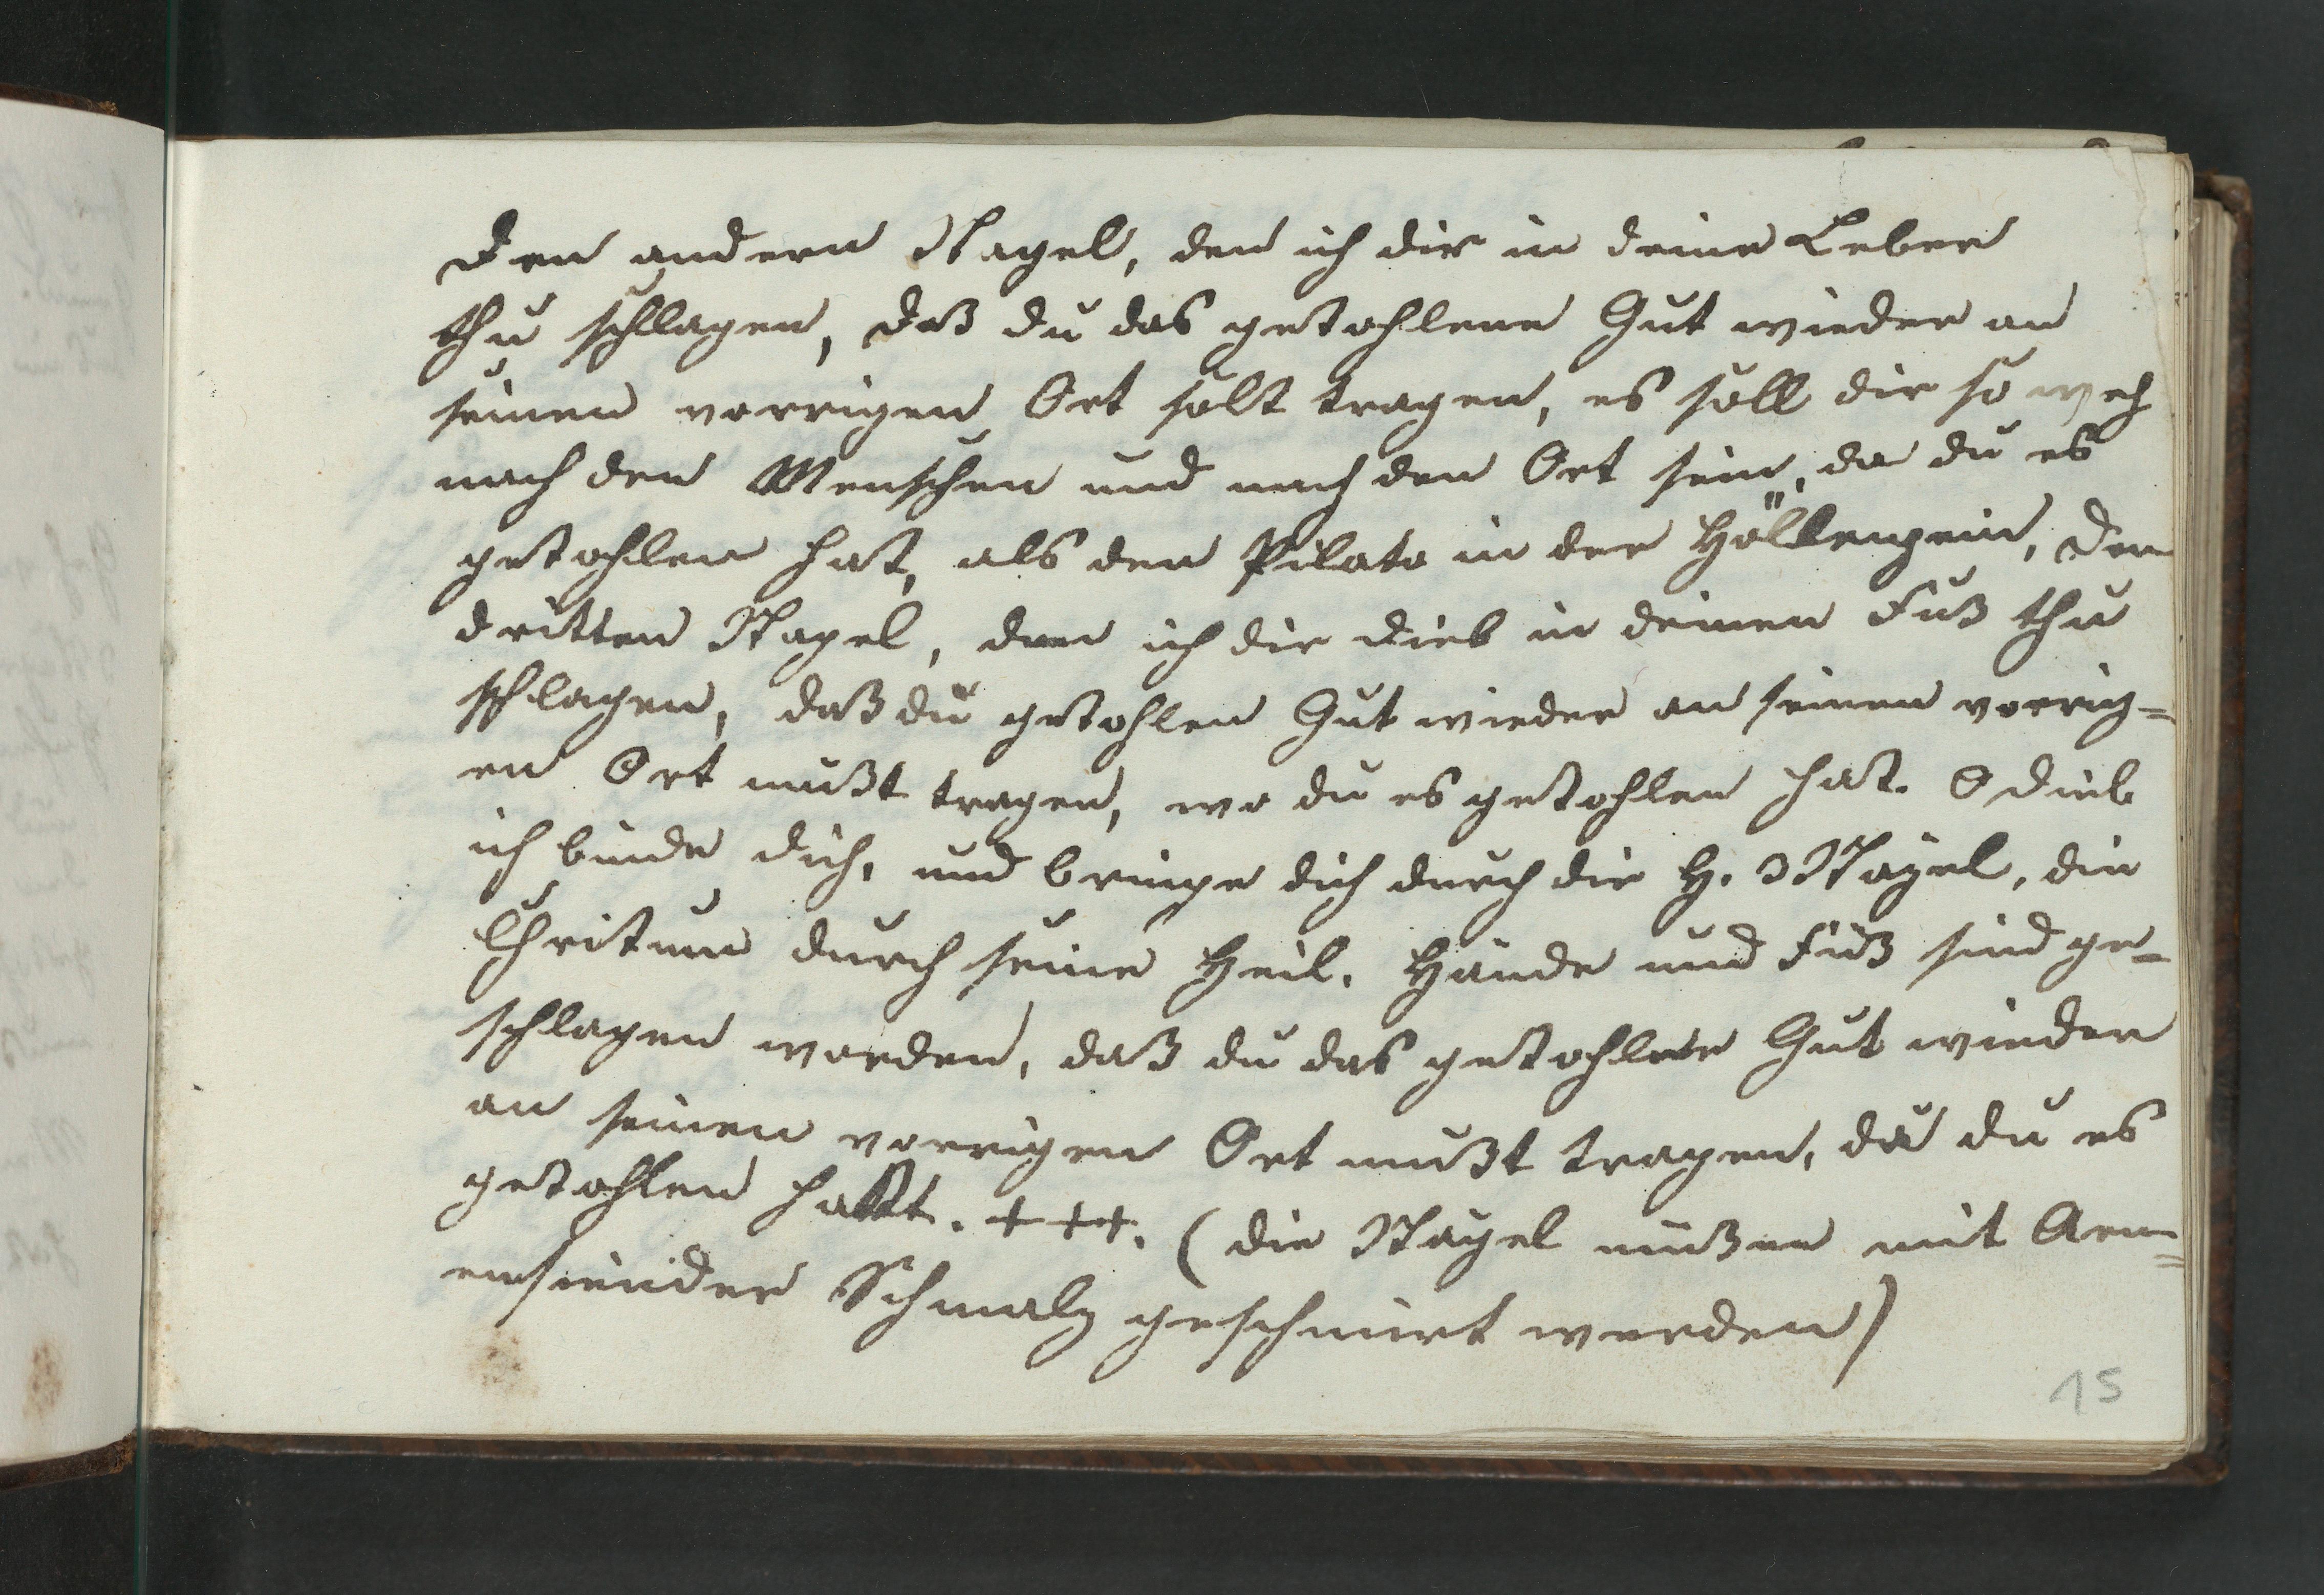 Den andern Nagel, den ich dir in deine Leber
thu schlagen, daß du das gestohlene Gut wieder an
seinen vorrigen Ort solt tragen, es soll dir so weh
nach den Menschen und nach den Ort sein, da du es
gestohlen hast, als den Pilato in der Höllenpein, den
dritten Nagel, den ich dir Dieb in deinen Fuß thu
schlagen, daß du gestohlen Gut wieder an seinen vorrig=
en Ort mußt tragen, wo du es gestohlen hast. O Dieb
ich binde dich, und bringe dich durch die H. 3 Nägel, die
Christum durch seine Heil. Hände und Füß sind ge=
schlagen worden, daß du das gestohlene Gut wieder
an seinen vorrigen Ort mußt tragen, da du es
gestohlen hast. +++. (die Nägel müßen mit Arm=
ensünder Schmalz geschmirt werden)
15